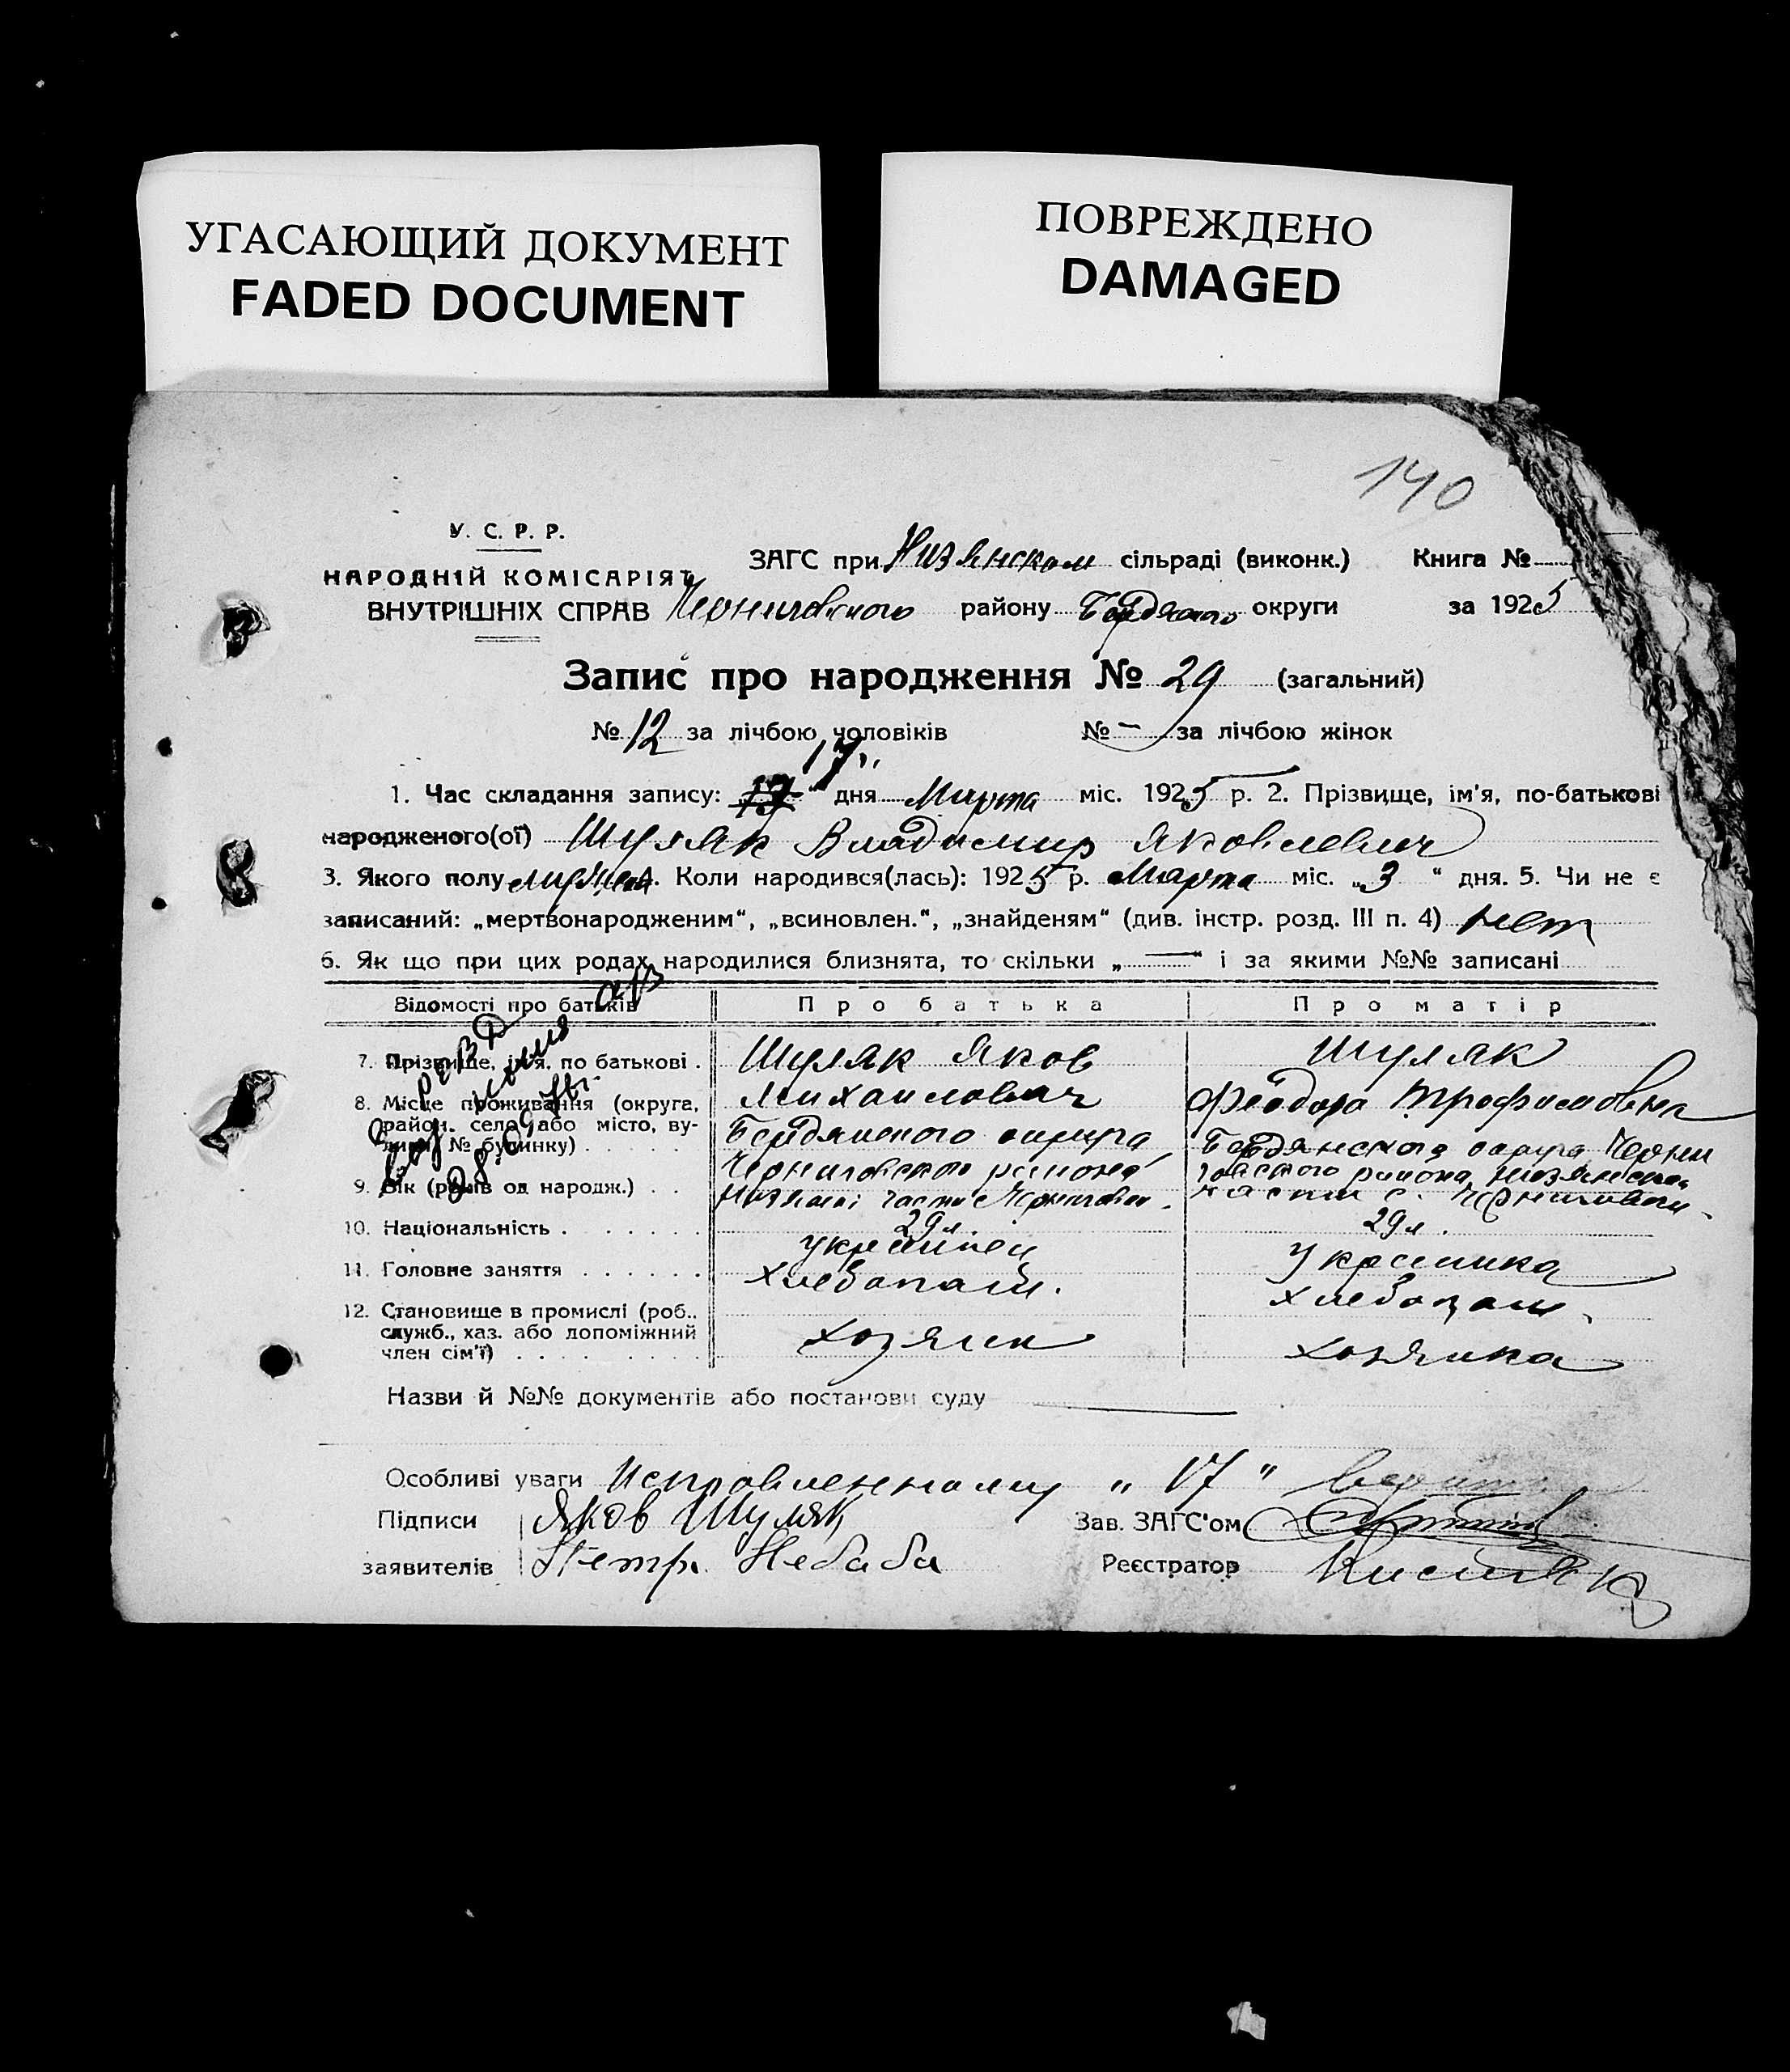 УГАСАЮЩИЙ ДОКУМЕНТ
FADED DOCUMENT
ПОВРЕЖДЕНО
DAMAGED
140
У. С. Р. Р.
НАРОДНІЙ КОМІСАРІЯТ
ВНУТРІШНІХ СПРАВ
ЗАГС при Низянском сільраді (виконк.) Книга №
Черниговского району Бердянского округи за 1925
Запис про народження № 29 (загальний)
№ 12 за лічбою чоловіків № - за лічбою жінок
17"
1. Час складання запису: " дня Марта міс. 1925 р. 2. Прізвище, ім'я, по-батькові
народженого(ої) Шуляк Владимир Яковлевич
3. Якого полу мужск 4. Коли народився(лась): 1925 р. Марта міс. „3 “ дня. 5. Чи не є
записаний: „мертвонародженим“, „всиновлен.“, „знайденям“ (див. інстр. розд. III п. 4) нет
6. Як що при цих родах народилися близнята, то скільки „ — “ і за якими №№ записані
Відомості про батьків Про батька Про матір
7. Прізвище, ім'я, по батькові . Шуляк Яков Михаилович Шуляк Феодора Трофимовна
8. Місце проживання (округа,
район, село або місто, вулиця № будинку) . . . . .
Бердянского округа Черниговского района части Чернигов
Бердянского округа Черниговского района Низянской части с. Черниговки
9. Вік (років од народж.) . . 29 л. 29 л.
10. Національність . . . . . . Украинец Украинка
11. Головне заняття . . . . . . Хлебопаш. Хлебопаш.
12. Становище в промислі (роб.,
служб., хаз. або допоміжний
член сім'ї) . . . . . . . . . Хозяин Хозяйка
Назви й №№ документів або постанови суду
Особливі уваги Исправленному „ 17 “ верить
Підписи Яков Шуляк Зав. ЗАГС'ом
заявителів Петр. Небаба Реєстратор Кисляк